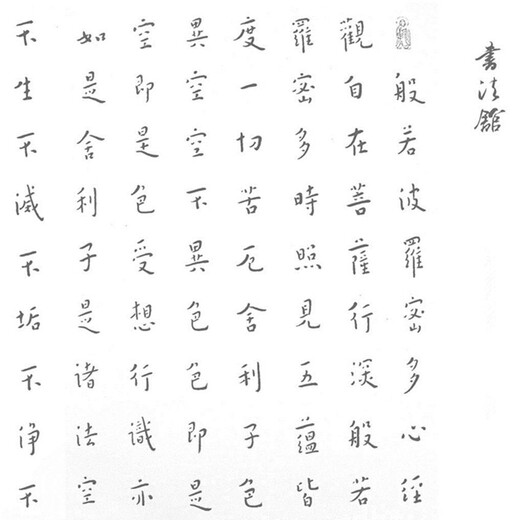 書法館
般若波羅密多心經
觀自在菩薩行深般若
羅密多時照見五蘊皆
度一切苦厄舍利子色
異空空不異色色即是
空即是色受想行識亦
如是舍利子是諸法空
不生不滅不垢不淨不